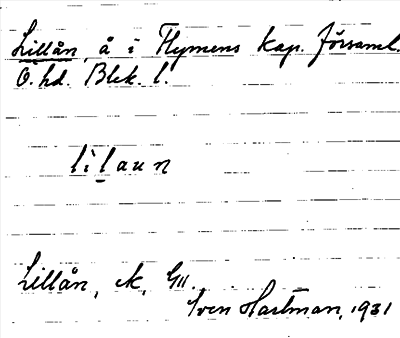 Lillån, å i Flymens kap. församl.
Ö. hd. Blek. l.
lìlaun
Lillån, ek, G11.
Sven Hartman, 1931